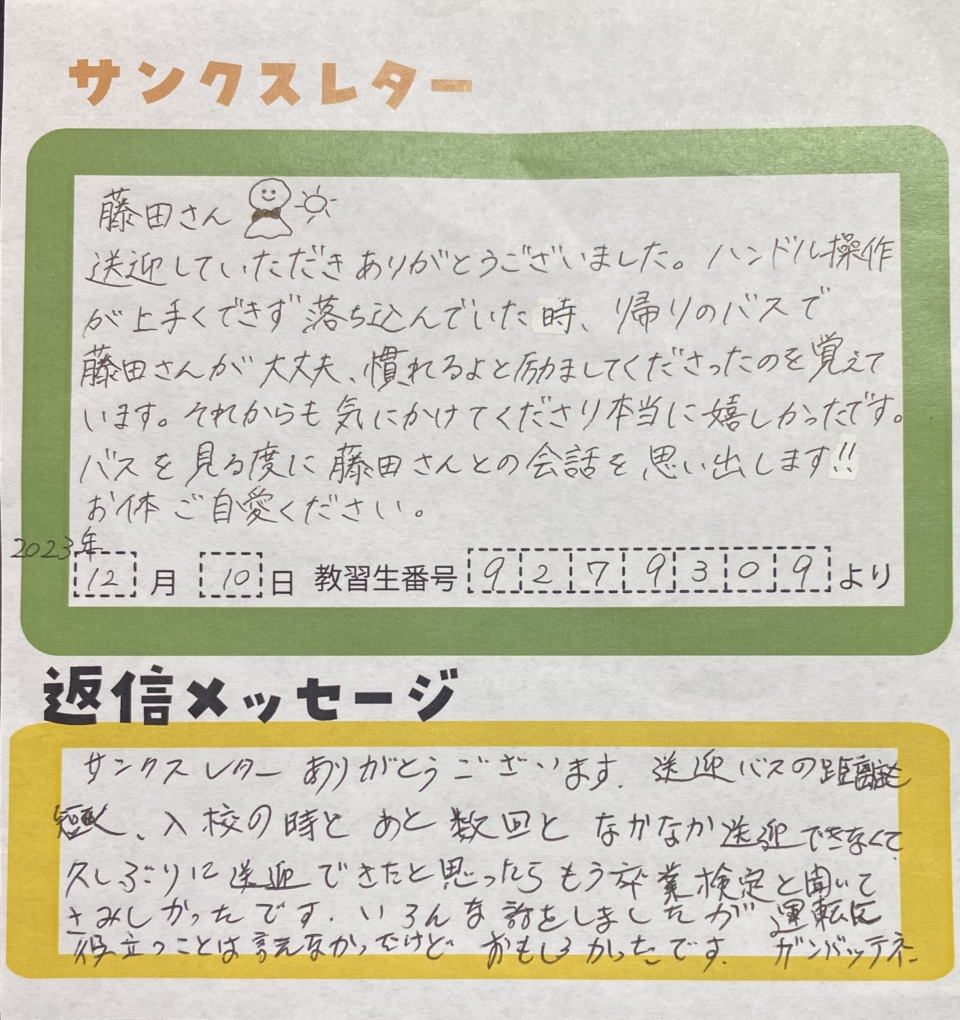 サンクスレター
藤田さん
送迎していただきありがとうございました。ハンドル操作
が上手くできず落ち込んでいた時、帰りのバスで
藤田さんが大丈夫、慣れるよと励ましてくださったのを覚えて
います。それからも気にかけてくださり本当に嬉しかったです。
バスを見る度に藤田さんとの会話を思い出します!!
お体ご自愛ください。
2023年
12月 10日 教習生番号 9279309 より
返信メッセージ
サンクスレターありがとうございます. 送迎バスの距離も
短く、入校の時とあと数回となかなか送迎できなくて
久しぶりに送迎できたと思ったらもう卒業検定と聞いて
さみしかったです. いろんな話をしましたが運転に
役立つことは言えなかったけどおもしろかったです. ガンバッテネ